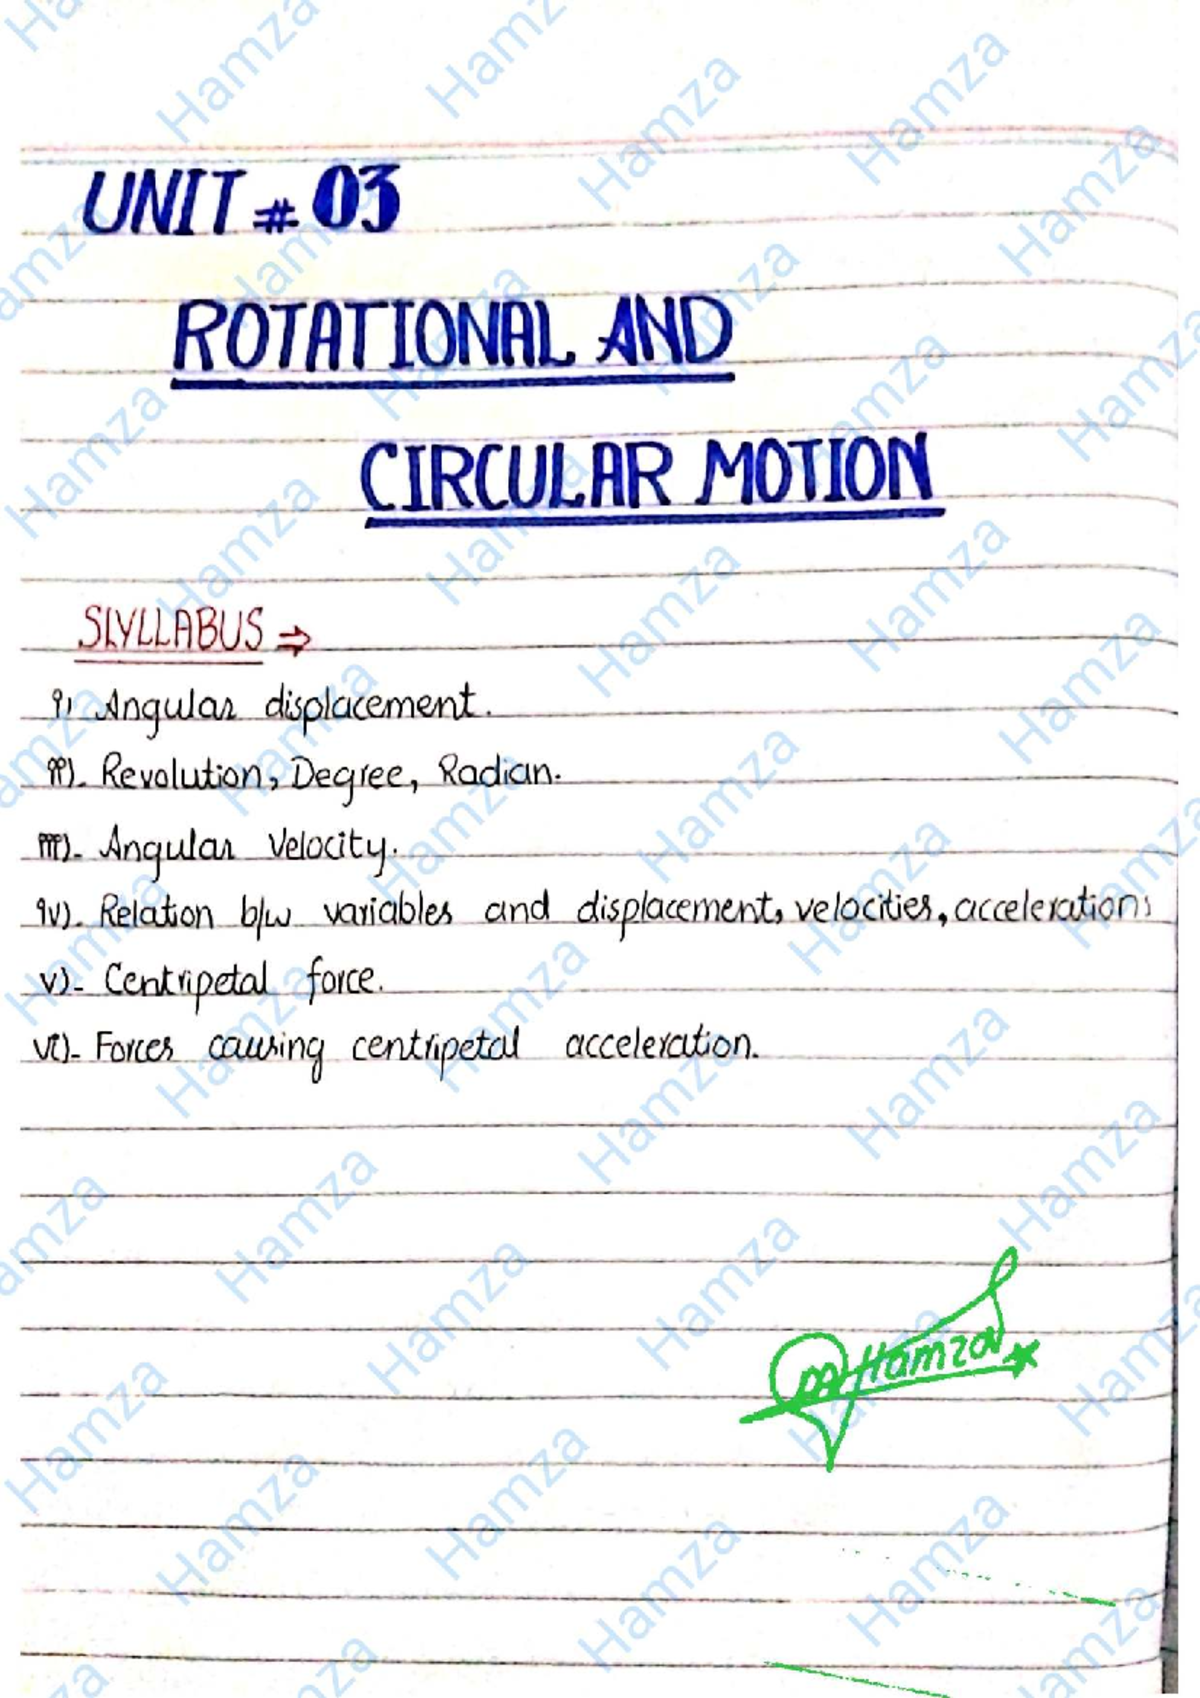 UNIT # 03
ROTATIONAL AND
CIRCULAR MOTION
SLYLLABUS ⇒
i) Angular displacement.
ii). Revolution, Degree, Radian.
iii)- Angular Velocity.
iv). Relation b/w variables and displacement, velocities, accelerations
v)- Centripetal force.
vi)- Forces causing centripetal acceleration.
M Hamza
Hamza